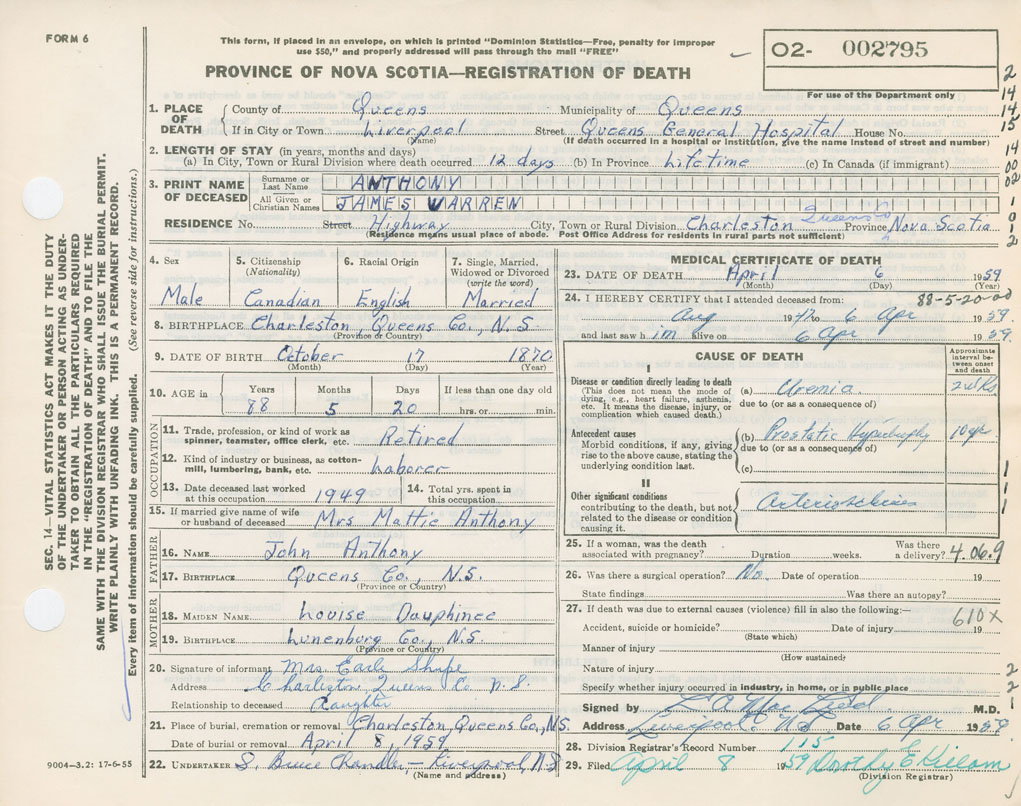 FORM 6
This form, if placed in an envelope, on which is printed "Dominion Statistics—Free, penalty for improper
use $50," and properly addressed will pass through the mail "FREE"
O2- 002795
PROVINCE OF NOVA SCOTIA—REGISTRATION OF DEATH
For use of the Department only
1. PLACE OF DEATH County of Queens Municipality of Queens
If in City or Town Liverpool Street Queens General Hospital House No.
(Name) (If death occurred in a hospital or institution, give the name instead of street and number)
2. LENGTH OF STAY (in years, months and days)
(a) In City, Town or Rural Division where death occurred 12 days (b) In Province Lifetime (c) In Canada (if immigrant)
3. PRINT NAME OF DECEASED Surname or Last Name ANTHONY
All Given or Christian Names JAMES WARREN
Queens Co
RESIDENCE No. Street Highway City, Town or Rural Division Charleston Province Nova Scotia
(Residence means usual place of abode. Post Office Address for residents in rural parts not sufficient)
2
14
14
15
14
00
02
1
0
1
2
SEC. 14—VITAL STATISTICS ACT MAKES IT THE DUTY
OF THE UNDERTAKER OR PERSON ACTING AS UNDER-
TAKER TO OBTAIN ALL THE PARTICULARS REQUIRED
IN THE "REGISTRATION OF DEATH" AND TO FILE THE
SAME WITH THE DIVISION REGISTRAR WHO SHALL ISSUE THE BURIAL PERMIT.
WRITE PLAINLY WITH UNFADING INK. THIS IS A PERMANENT RECORD.
Every item of information should be carefully supplied. (See reverse side for instructions.)
4. Sex Male
5. Citizenship (Nationality) Canadian
6. Racial Origin English
7. Single, Married, Widowed or Divorced (write the word) Married
8. BIRTHPLACE Charleston, Queens Co., N.S.
(Province or Country)
9. DATE OF BIRTH October 17 1870
(Month) (Day) (Year)
10. AGE in Years 88 Months 5 Days 20 If less than one day old hrs. or min.
OCCUPATION
11. Trade, profession, or kind of work as
spinner, teamster, office clerk, etc. Retired
12. Kind of industry or business, as cotton-
mill, lumbering, bank, etc. Laborer
13. Date deceased last worked
at this occupation 1949
14. Total yrs. spent in
this occupation
15. If married give name of wife
or husband of deceased Mrs Mattie Anthony
FATHER
16. NAME John Anthony
17. BIRTHPLACE Queens Co., N.S.
(Province or Country)
MOTHER
18. MAIDEN NAME Louise Dauphinee
19. BIRTHPLACE Lunenburg Co., N.S.
(Province or Country)
20. Signature of informant Mrs. Earle Shupe
Address Charleston, Queens Co. N.S.
Relationship to deceased Daughter
21. Place of burial, cremation or removal Charleston, Queens Co., N.S.
Date of burial or removal April 8, 1959
22. UNDERTAKER S. Bruce Chandler—Liverpool, N.S.
(Name and address)
9004-3.2: 17-6-55
MEDICAL CERTIFICATE OF DEATH
23. DATE OF DEATH April 6 1959
(Month) (Day) (Year)
24. I HEREBY CERTIFY that I attended deceased from: 88-5-20-00
Aug 1947 to 6 Apr 1959.
and last saw him alive on 6 Apr 1959.
CAUSE OF DEATH
Approximate interval between onset and death
I
Disease or condition directly leading to death
(This does not mean the mode of
dying, e.g., heart failure, asthenia,
etc. It means the disease, injury, or
complication which caused death.)
(a) Uremia 2 wks
due to (or as a consequence of)
Antecedent causes
Morbid conditions, if any, giving
rise to the above cause, stating the
underlying condition last.
(b) Prostatic Hypertrophy 10 yr
due to (or as a consequence of)
(c)
II
Other significant conditions
contributing to the death, but not
related to the disease or condition
causing it.
Arteriosclerosis
1
1
1
25. If a woman, was the death
associated with pregnancy? Duration weeks. Was there
a delivery? 4.06.9
26. Was there a surgical operation? No. Date of operation 19
State findings Was there an autopsy?
27. If death was due to external causes (violence) fill in also the following:— 610X
Accident, suicide or homicide? Date of injury 19
(State which)
Manner of injury
(How sustained)
Nature of injury
Specify whether injury occurred in industry, in home, or in public place
2
2
1
Signed by M.D.
Address Liverpool N.S Date 6 Apr 1959
28. Division Registrar's Record Number 115
29. Filed April 8 1959 Dorothy E Killam
(Division Registrar)